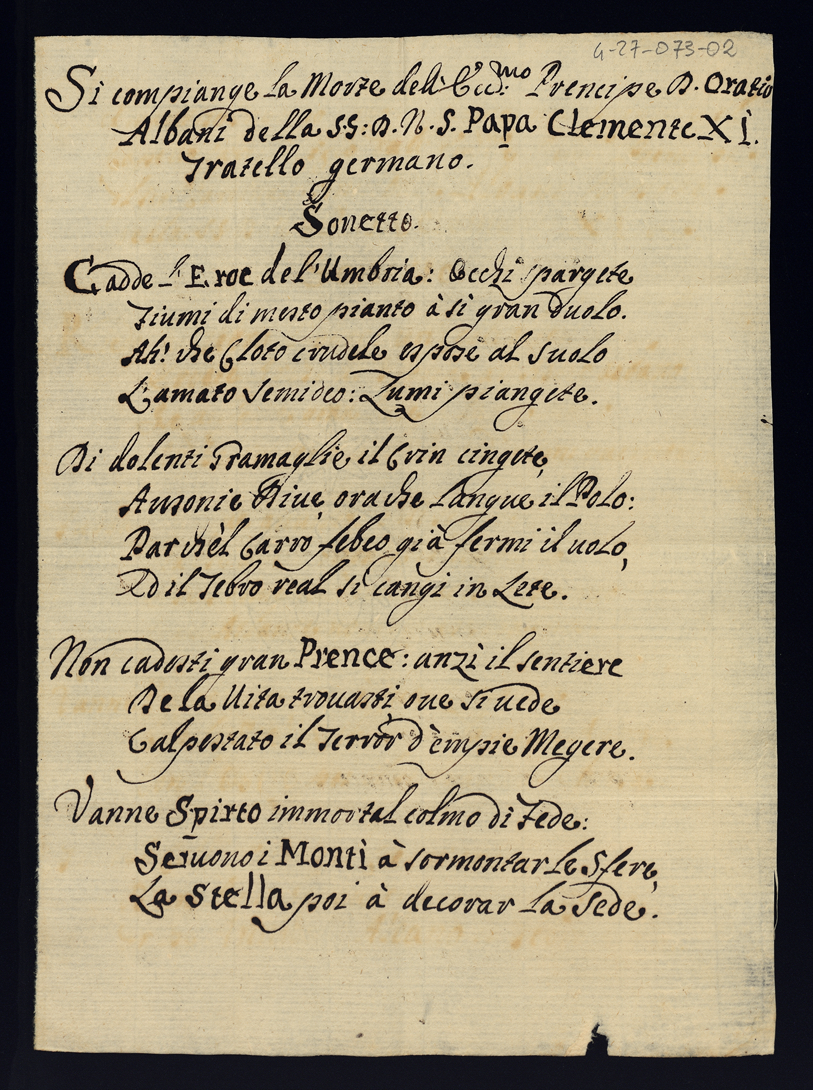 4-27-073-02
Si compiange la Morte dell' Ecc:mo Prencipe D. Oratio
Albani della SS: D. N. S. Papa Clemente XI.
Fratello germano.
Sonetto.
Cadde l'Eroe del'Umbria: Occhi spargete
Fiumi di mesto pianto à sì gran duolo.
Ah! che Cloto crudele espose al suolo
L'amato semideo: Lumi piangete.
Di dolenti Gramaglie il Crin cingete,
Ausonie Rive, ora che langue il Polo:
Par ch'èl Carro febeo già fermi il uolo,
Ed il Tebro real si cangi in Lete.
Non cadesti gran Prence: anzi il sentiere
De la Uita trouasti oue si uede
Calpestato il Terrór d'empie Megere.
Vanne Spirto immortal colmo di Fede:
Seruono i Monti à sormontar le Sfere,
La Stella poi à decorar la Sede.